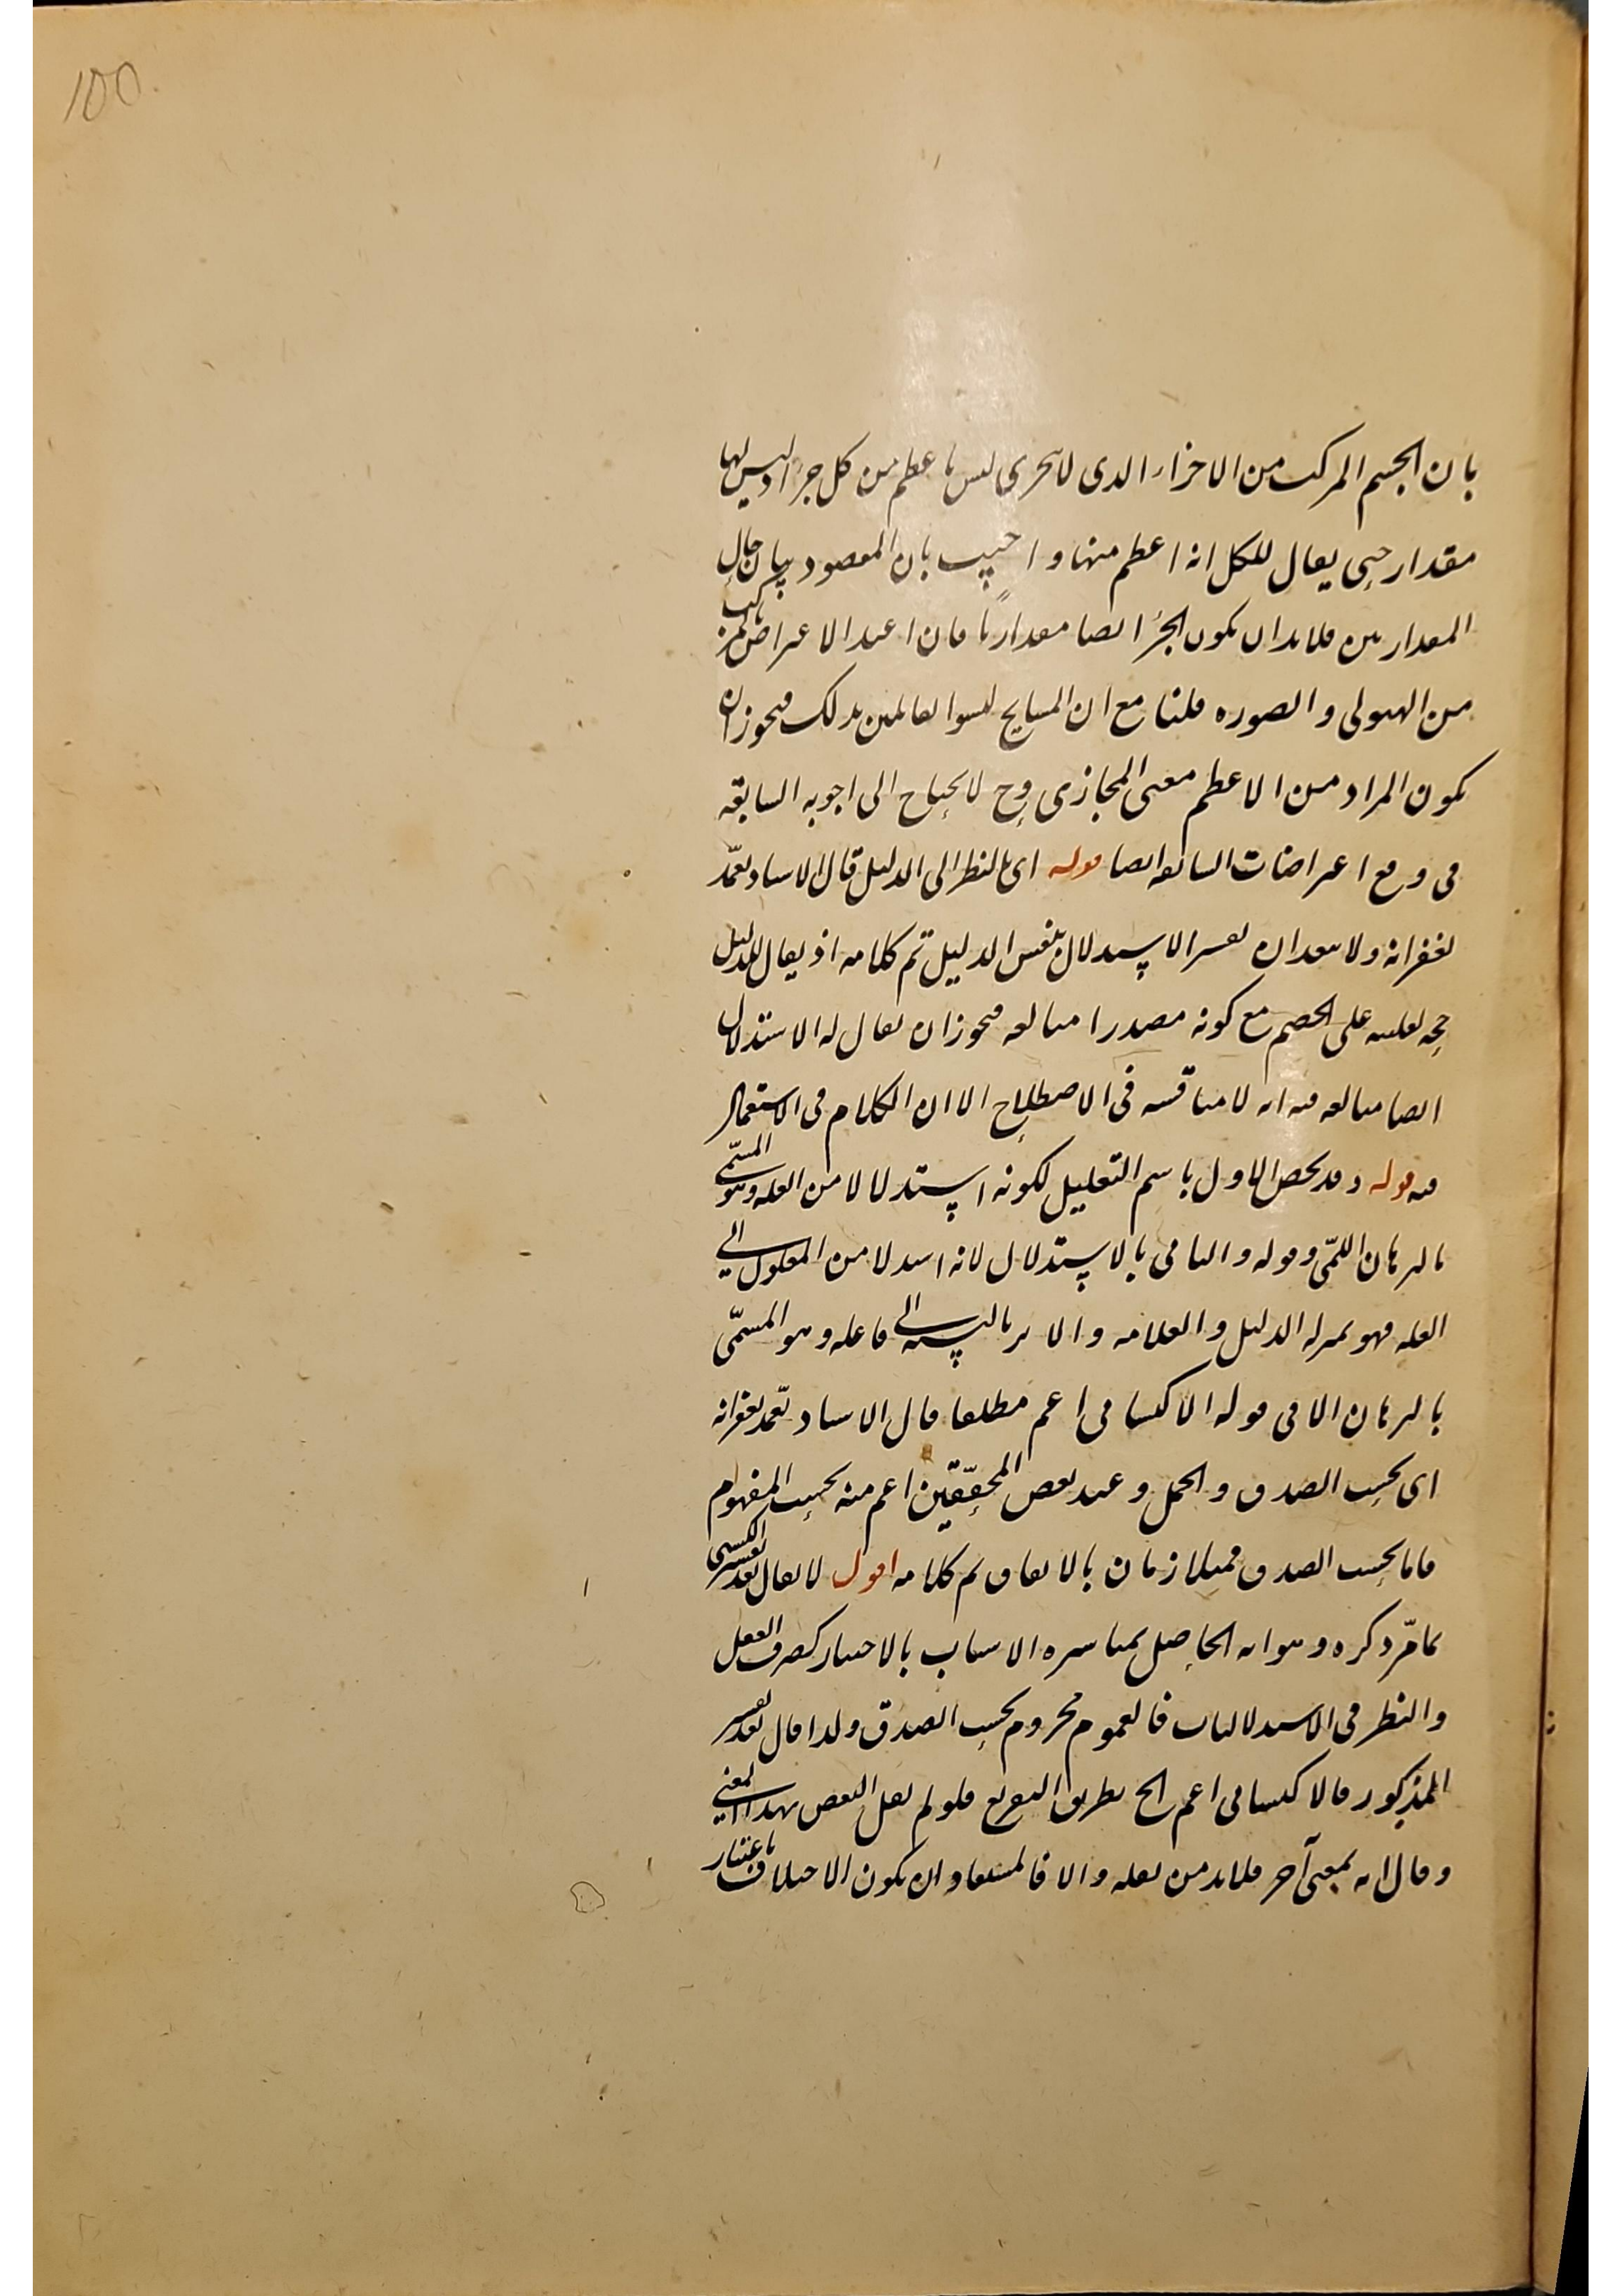 100
بان الجسم المركب من الاجزاء الذى لا تتجزى ليس باعظم من كل جزء اذ ليس لها
مقدار حتى يقال للكل انه اعظم منها واجيب بان المقصود بيان حال
المقدارين فلا بد ان يكون الجزء ايضا مقداريًا فان اعيد الاعتراض بالمركب
من الهيولى والصورة قلنا مع ان المشايخ ليسوا بقائلين بذلك فيجوز ان
يكون المراد من الاعظم معنى المجازى وح لا يحتاج الى اجوبه السابقه
فى دفع اعتراضات السابقه ايضا قوله اى بالنظر الى الدليل قال الاستاد تغمّد
بغفرانه ولا يبعد ان يفسر الاستدلال بنفس الدليل تم كلامه اذ يقال للدليل
حجه لغلبته على الخصم مع كونه مصدرا مبالغه فيجوز ان يقال له الاستدلال
ايضا مبالغه فيه انه لا مناقشه فى الاصطلاح الا ان الكلام فى الاستعمال
فيه قوله وقد يخص الاول باسم التعليل لكونه استدلالا من العله وهو المسمّى
بالبرهان اللمّى وقوله والثانى بالاستدلال لانه استدلا من المعلول الى
العله فهو بمنزله الدليل والعلامه والاثر بالنسبة الى فاعله وهو المسمّى
بالبرهان الانى قوله الاكتسابى اعم مطلقا قال الاستاد تغمّد بغفرانه
اى بحسب الصدق والحمل وعند بعض المحقّقين اعم منه بحسب المفهوم
فاما بحسب الصدق فمتلازمان بالاتفاق تم كلامه اقول لا يقال بعد تفسير الكسبى
بما مرّ ذكره وهو انه الحاصل بمباشره الاسباب بالاختيار كصرف العقل
والنظر فى الاستدلاليات فالعموم مجزوم بحسب الصدق ولذا قال بعد تفسير
المذكور فالاكتسابى اعم الخ بطريق التفريع فلو لم يقل البعض بهذا المعنى
وقال انه بمعنى آخر فلا بد من نقله والا فالمستفاد ان يكون الاختلاف باعتبار